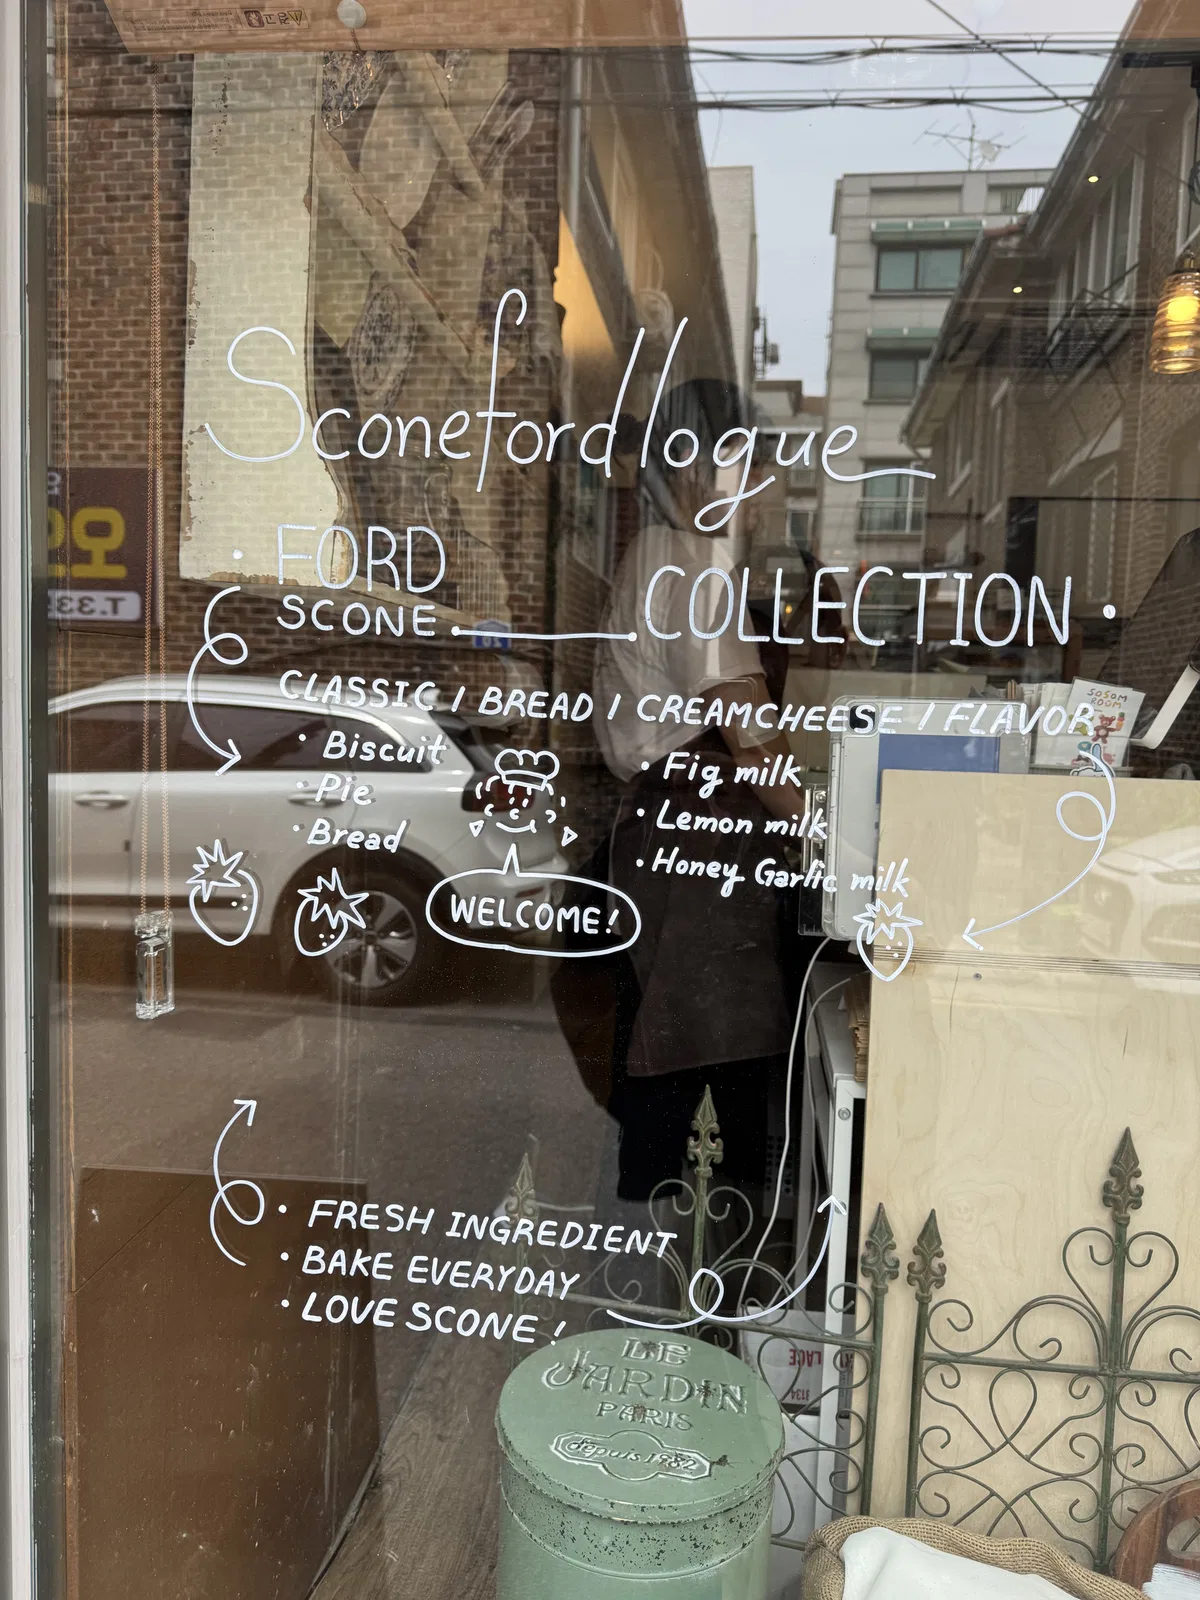 Sconefordlogue
· FORD
SCONE
COLLECTION ·
CLASSIC / BREAD / CREAMCHEESE / FLAVOR
· Biscuit
· Pie
· Bread
· Fig milk
· Lemon milk
· Honey Garlic milk
WELCOME!
SOSOM
ROOM
· FRESH INGREDIENT
· BAKE EVERYDAY
· LOVE SCONE!
LE
JARDIN
PARIS
depuis 1982
T.33